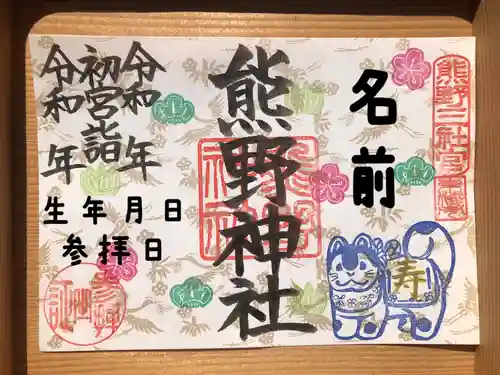 名前
熊野神社
令和　年
初宮詣
令和　年
生年月日
参拝日
寿